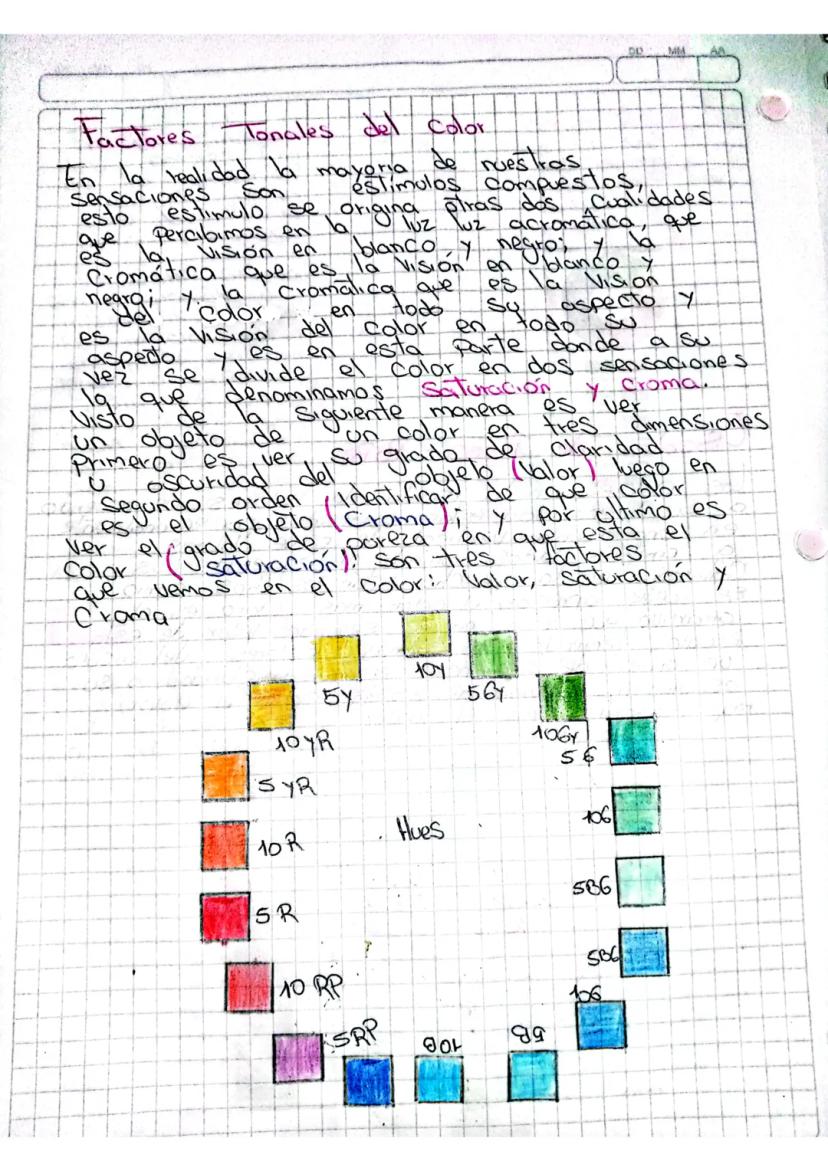 DD MM AA
Factores Tonales del Color
En la realidad la mayoria de nuestras
sensaciones son estimulos compuestos,
esto estimulo se origina otras dos cualidades
que percibimos en la luz luz acromática, que
es la visión en blanco y negro; y la
Cromática que es la visión en blanco y
negro; y la cromatica que es la Visión
del color en todo su aspecto y
es la visión del color en todo su
aspecto y es en esta parte donde a su
vez se divide el color en dos sensaciones
la que denominamos saturación y croma.
Visto de la siguiente manera es ver
un objeto de un color en tres dimensiones
Primero es ver su grado de claridad
u oscuridad del objeto (Valor) luego en
segundo orden (Identificar de que color
es el objeto (Croma); y por ultimo es
ver el (grado de pureza en que esta el
color (saturación). Son tres factores
que vemos en el color: Valor, saturación y
Croma
10Y
5Y
5GY
10YR
10GY
5G
5YR
10G
Hues
10R
5BG
5R
5BG
10RP
10G
5RP
10B
5B